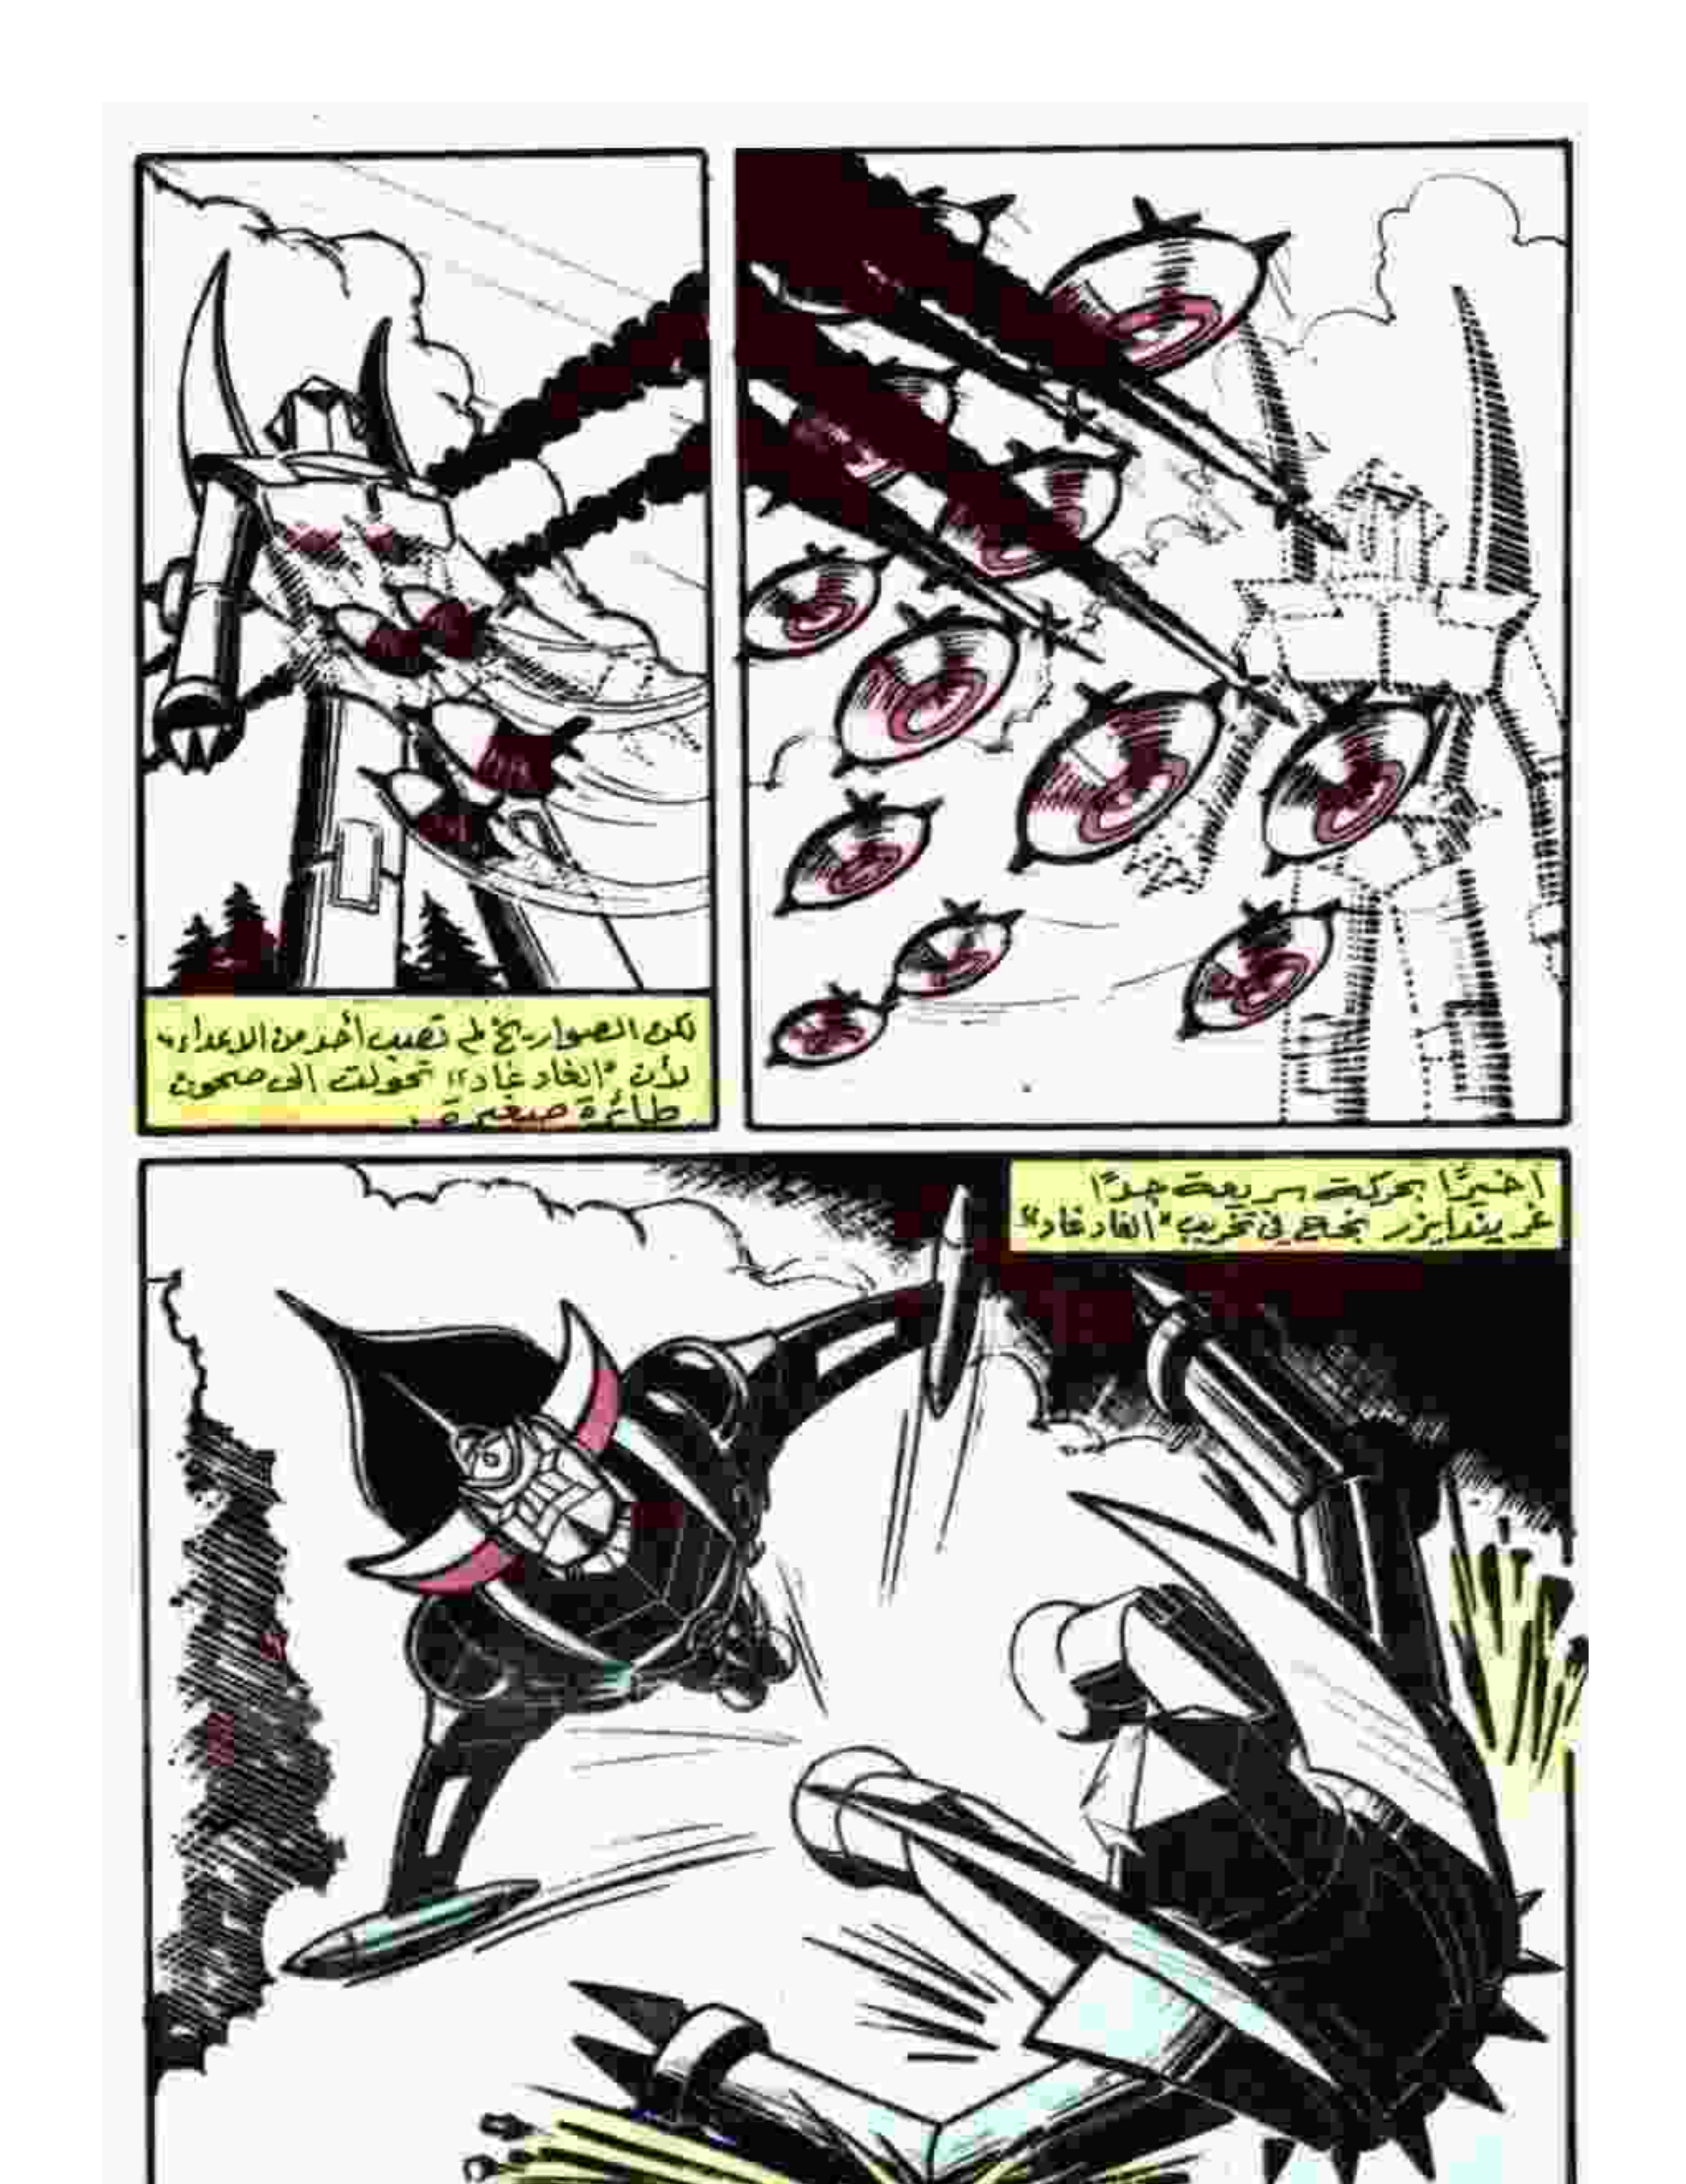 لكن الصواريخ لم تصب أحد من الاعداء
لأن "الغادغاد" تحولت الى صحون
طائرة صغيرة .
اخيرًا بحركة سريعة جدًا
غريندايزر نجح في تخريب "الغادغاد"